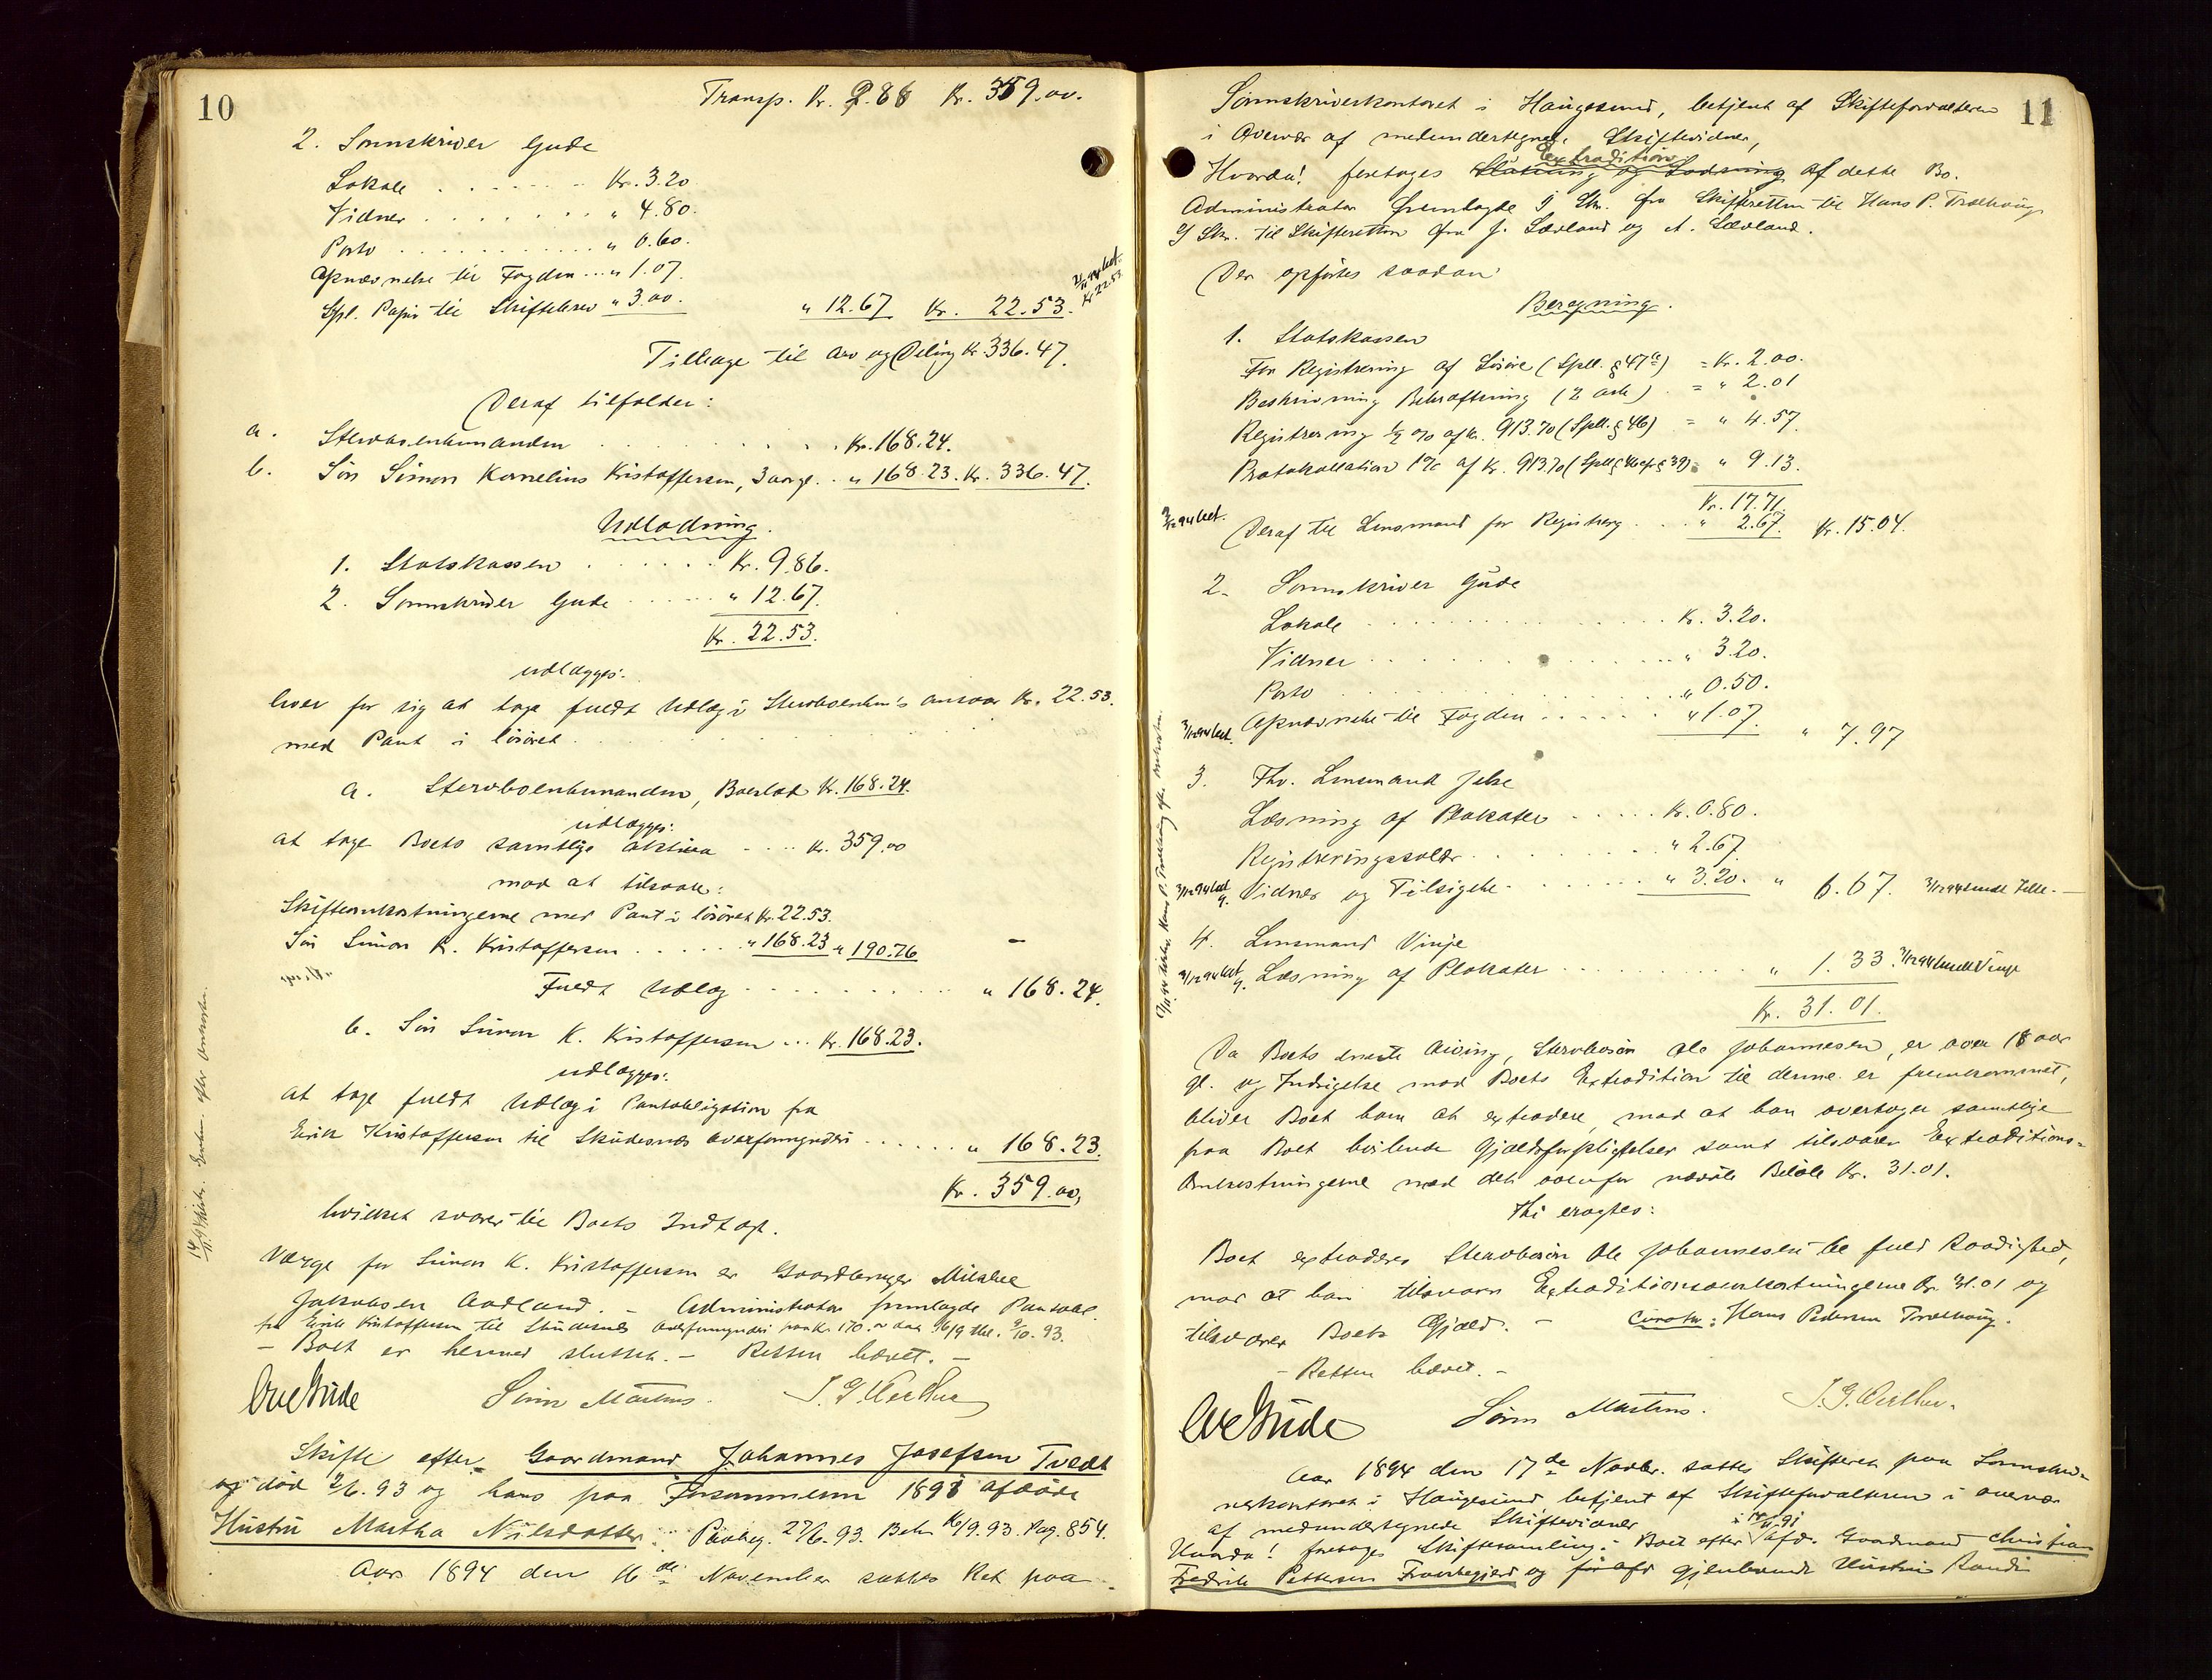 10
Transp. Kr. 9.86 Kr. 359.00.
2. Sorenskriver Gude
Lokale . . . . . . . Kr. 3.20
Vidner . . . . . . . " 4.80.
Porto . . . . . . . " 0.60.
Opnævnelse til Fogden ... " 1.07.
Spl. Papir til Skiftebrev " 3.00. " 12.67 Kr. 22.53.
Kr 22.53
Tilbage til Arv og Deling Kr. 336.47.
Deraf tilfalder:
a. Stervboenkemanden . . . . . Kr. 168.24.
b. Søn Simon Kornelius Kristoffersen, 3 aar gl. . " 168.23. Kr. 336.47.
Udlodning.
1. Statskassen . . . . . . Kr. 9.86.
2. Sorenskriver Gude . . . . . " 12.67.
Kr. 22.53.
udlægges:
hver for sig at tage fuldt Udlæg i Stervboenkem's ansvar Kr. 22.53.
med Pant i løsøret . . . . .
a. Stervboenkemanden, Boeslod Kr. 168.24.
udlægges:
at tage Boets samtlige aktiva . . . . Kr. 359.00
mod at tilsvare:
Skifteomkostningerne med Pant i løsøret Kr. 22.53.
Søn Simon K. Kristoffersen . . . . . " 168.23 " 190.76 -
Fuldt Udlæg . . . . . . . . " 168.24.
b. Søn Simon K. Kristoffersen ... Kr. 168.23.
udlægges:
at tage fuldt Udlæg i Pantobligation fra
Eirik Kristoffersen til Skudesnes overformynderi . . . . . . " 168.23.
Kr. 359.00,
hvilket svarer til Boets Indtægt.
Værge for Simon K. Kristoffersen er Gaardbruger Mikkel
Jakobsen Aadland. - Administrator fremlagde Pantobl.
fra Eirik Kristoffersen til Skudesnes Overformynderi paa Kr. 170.00 dat. 16/9 thl. 9/10. 93.
- Boet er hermed sluttet. - Retten hævet. -
Ove Gude Sørin Martins. J. G. Oerther
Skifte efter Gaardmand Johannes Josefsen Tvedt
død 2/6. 93 og hans paa Forsommeren 1893 afdøde
Hustru Martha Nilsdatter. Paabeg. 27/6. 93. Beh. 16/9. 93. Pag. 854.
Aar 1894 den 16de November sattes Ret paa
11
Sorenskriverkontoret i Haugesund, betjent af Skifteforvalteren
i Overvær af medundertegnede Skiftevidner,
Hvorda! foretages Slutning og Lodning extradition af dette Bo.
Administrator fremlagde 1) Skr. fra Skifteretten til Hans P. Trælhaug
2) Skr. til Skifteretten fra J. Sævland og A. Sævland.
Der opføres saadan
Beregning.
1. Statskassen
For Registrering af Løsøre (Spll. § 47 a) = Kr. 2.00.
Beskrivning Bekræftning (2 ark) . = " 2.01
Registrering 1/2 % af Kr. 913.70 (Spll. § 46) = " 4.57.
Protokollation 1% af Kr. 913.70 (Spll § 46 cfr § 39) = " 9.13.
Kr. 17.71.
Deraf til Lensmand for Registrerg . . . " 2.67. Kr. 15.04.
2. Sorenskriver Gude
Lokale . . . . . . . . . Kr. 3.20.
Vidner . . . . . . . . . " 3.20.
Porto . . . . . . . . . " 0.50.
Opnævnelse til Fogden . . . . . . " 1.07. " 7.97
3. Fhv. Lensmand Jelse
Læsning af Plakater . . . . . Kr. 0.80.
Registreringssalær . . . . . . . " 2.67.
Vidner og Tilsigelse . . . . . . . " 3.20. " 6.67.
4. Lensmand Vinje
Læsning af Plakater . . . . . . . . . " 1.33.
Kr. 31.01.
Da Boets eneste Arving, Stervbosøn Ole Johannesen, er over 18 aar
gl. og Indsigelse mod Boets Extradition til denne er fremkommet,
bliver Boet ham at extradere, mod at han overtager samtlige
paa Boet hvilende Gjældsforpligtelser samt tilsvarer Extraditions-
omkostningerne med det ovenfor nævnte Beløb Kr. 31.01.
Thi eragtes:
Boet extraderes Stervbosøn Ole Johannesen til fuld Raadighed,
mod at han tilsvarer Extraditionsomkostningerne Kr. 31.01 og
tilsvarer Boets Gjæld. - Curator: Hans Pedersen Trælhaug.
- Retten hævet. -
Ove Gude Sørin Martins. J. G. Oerther.
Aar 1894 den 17de Novbr. sattes Skifteret paa Sorenskri-
verkontoret i Haugesund, betjent af Skifteforvalteren i overvær
af medundertegnede Skiftevidner
Hvorda! foretages Skiftesamling i Boet efter afd. Gaardmand Christian
Fredrik Pettersen og før afd gjenlevende Hustru Randi